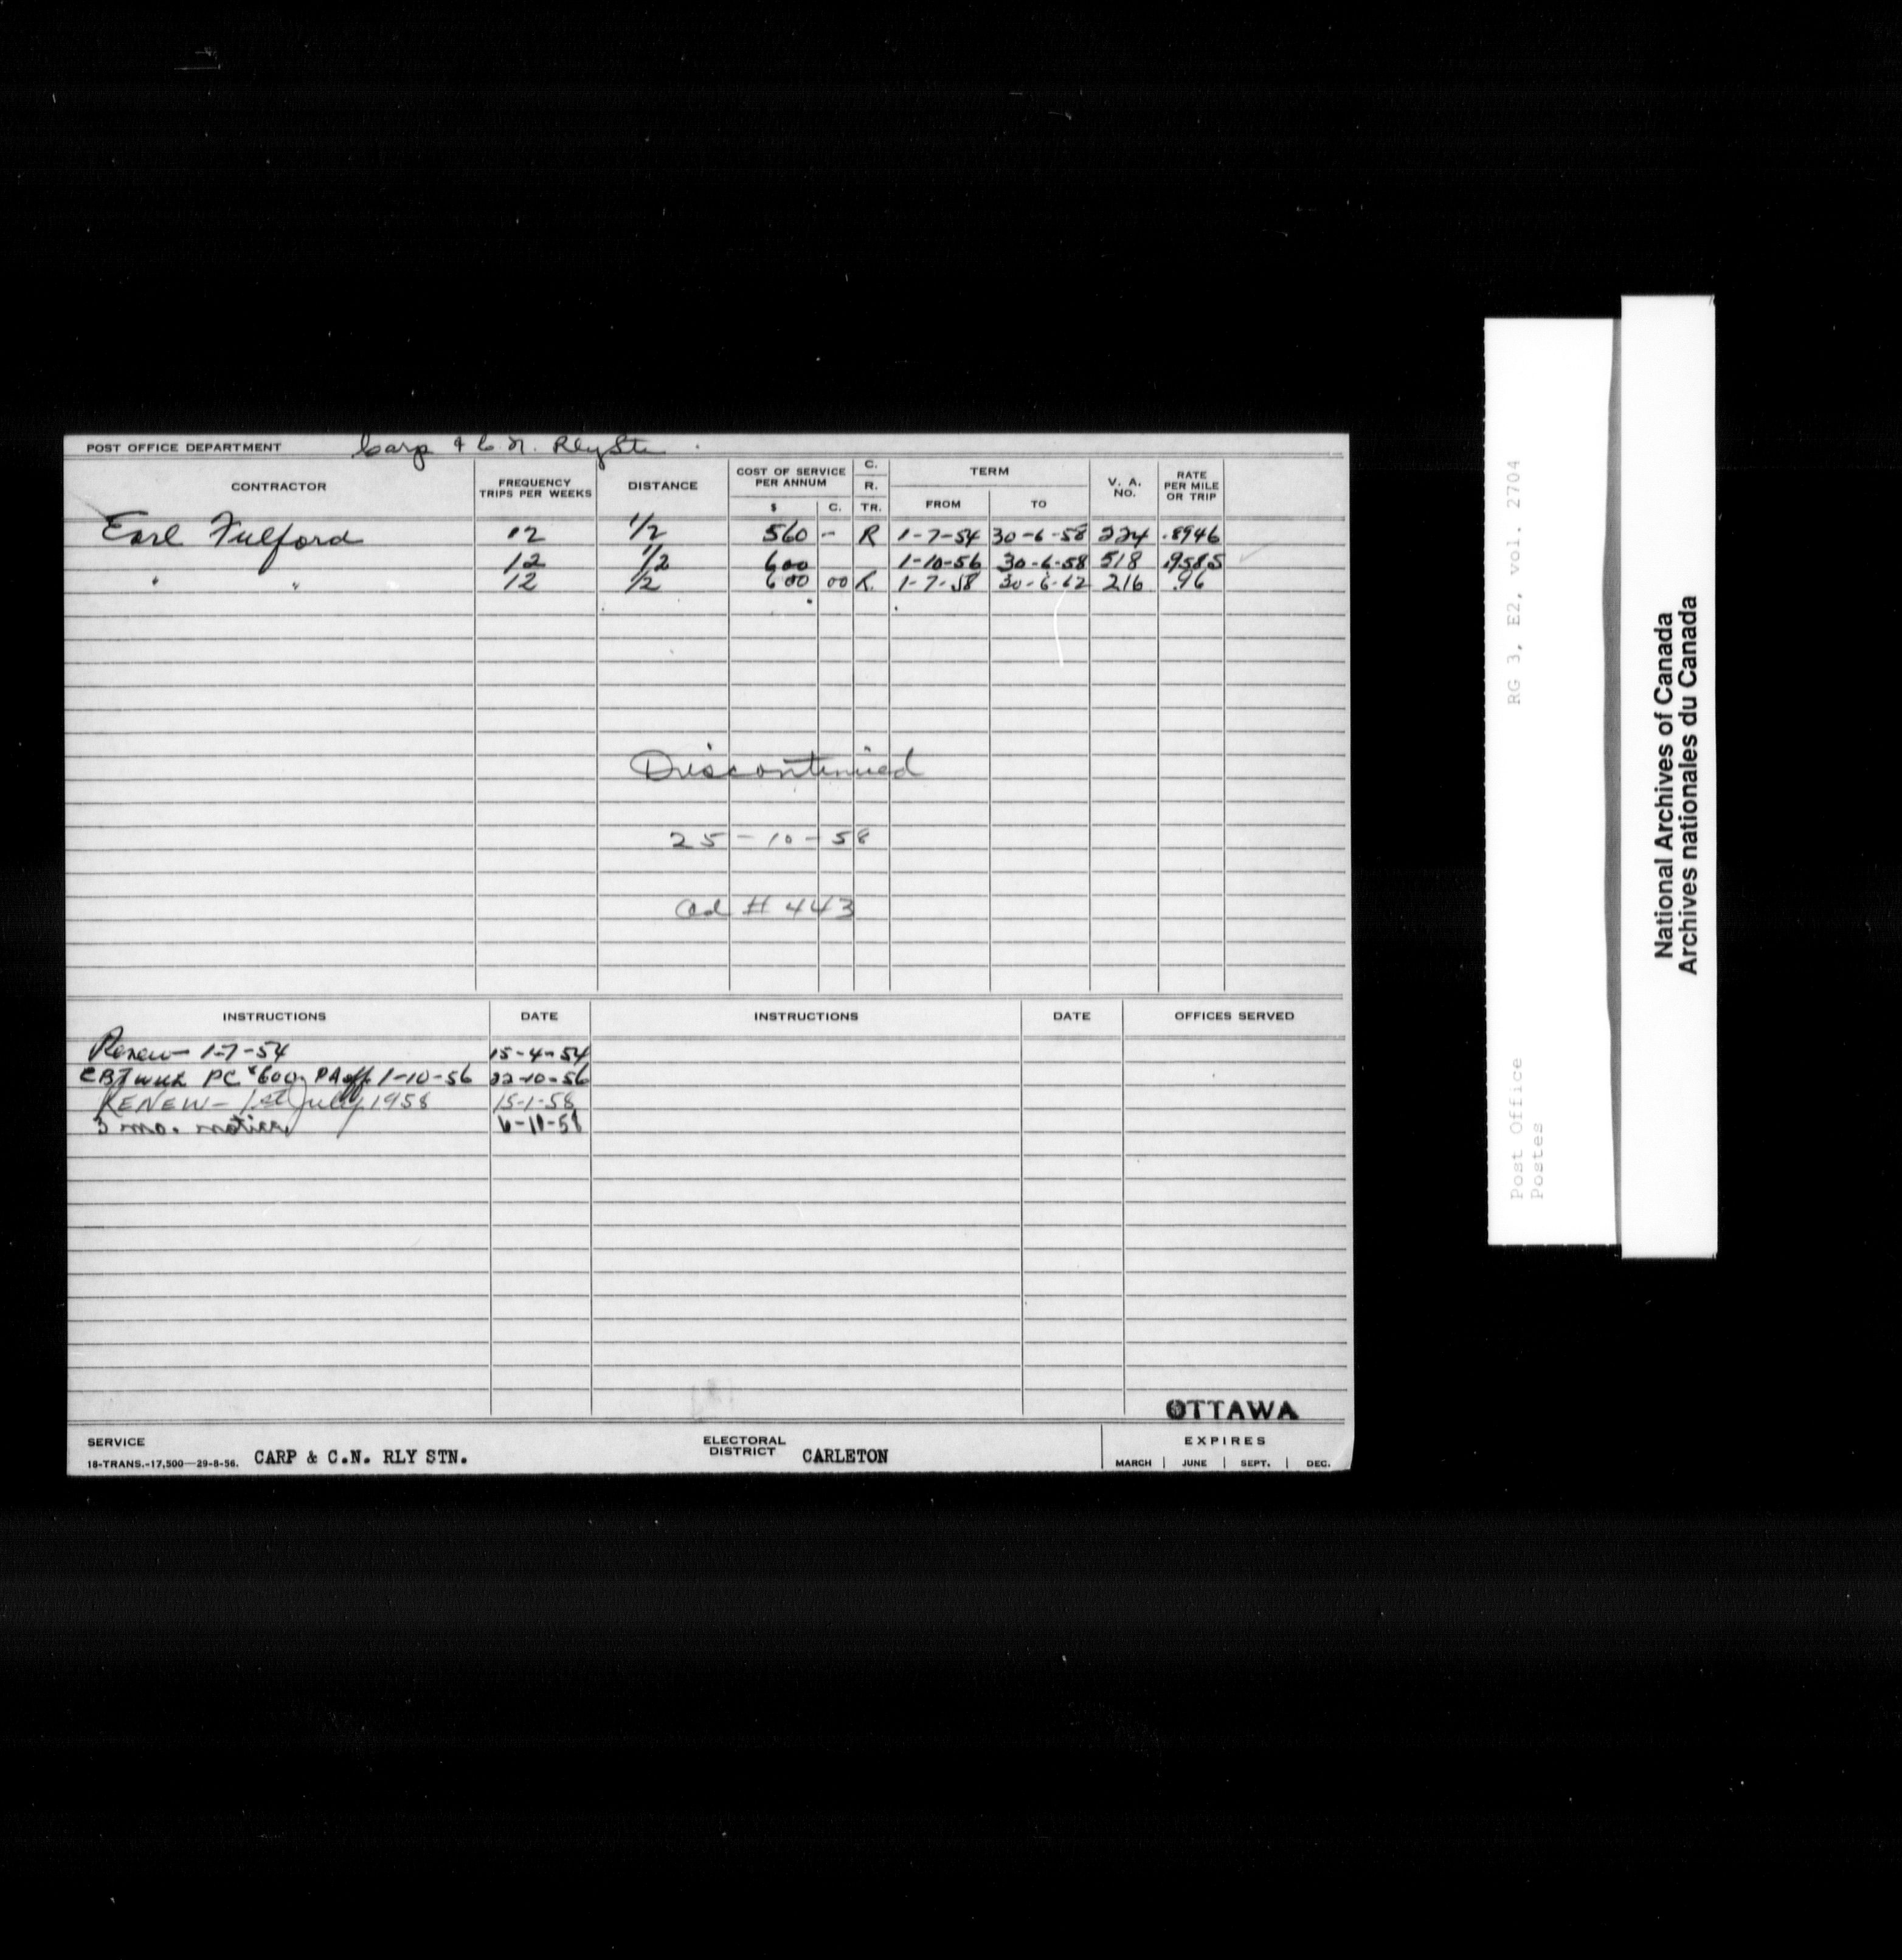 POST OFFICE DEPARTMENT Carp & C.N. Rly Stn
CONTRACTOR FREQUENCY TRIPS PER WEEKS DISTANCE COST OF SERVICE PER ANNUM $ C. C. R. TR. TERM FROM TO V. A. NO. RATE PER MILE OR TRIP
Earl Fulford 12 1/2 560 - R 1-7-54 30-6-58 224 .8946
12 1/2 600 1-10-56 30-6-58 518 .9585
" " 12 1/2 600 00 R 1-7-58 30-6-62 216 .96
Discontinued
25-10-58
Ad # 443
INSTRUCTIONS DATE INSTRUCTIONS DATE OFFICES SERVED
Renew - 1-7-54 15-4-54
PC $600 PA eff 1-10-56 22-10-56
RENEW - 1st July 1958 15-1-58
3 mo. notice
OTTAWA
SERVICE CARP & C.N. RLY STN. ELECTORAL DISTRICT CARLETON EXPIRES
18-TRANS.-17,500-29-8-56. MARCH | JUNE | SEPT. | DEC.
RG 3, E2, vol. 2704
Post Office
Postes
National Archives of Canada
Archives nationales du Canada